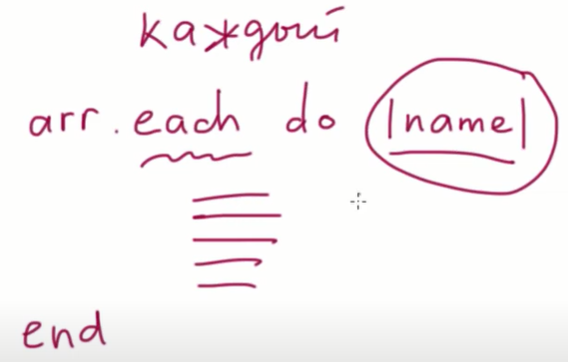 каждый
arr.each do |name|
end